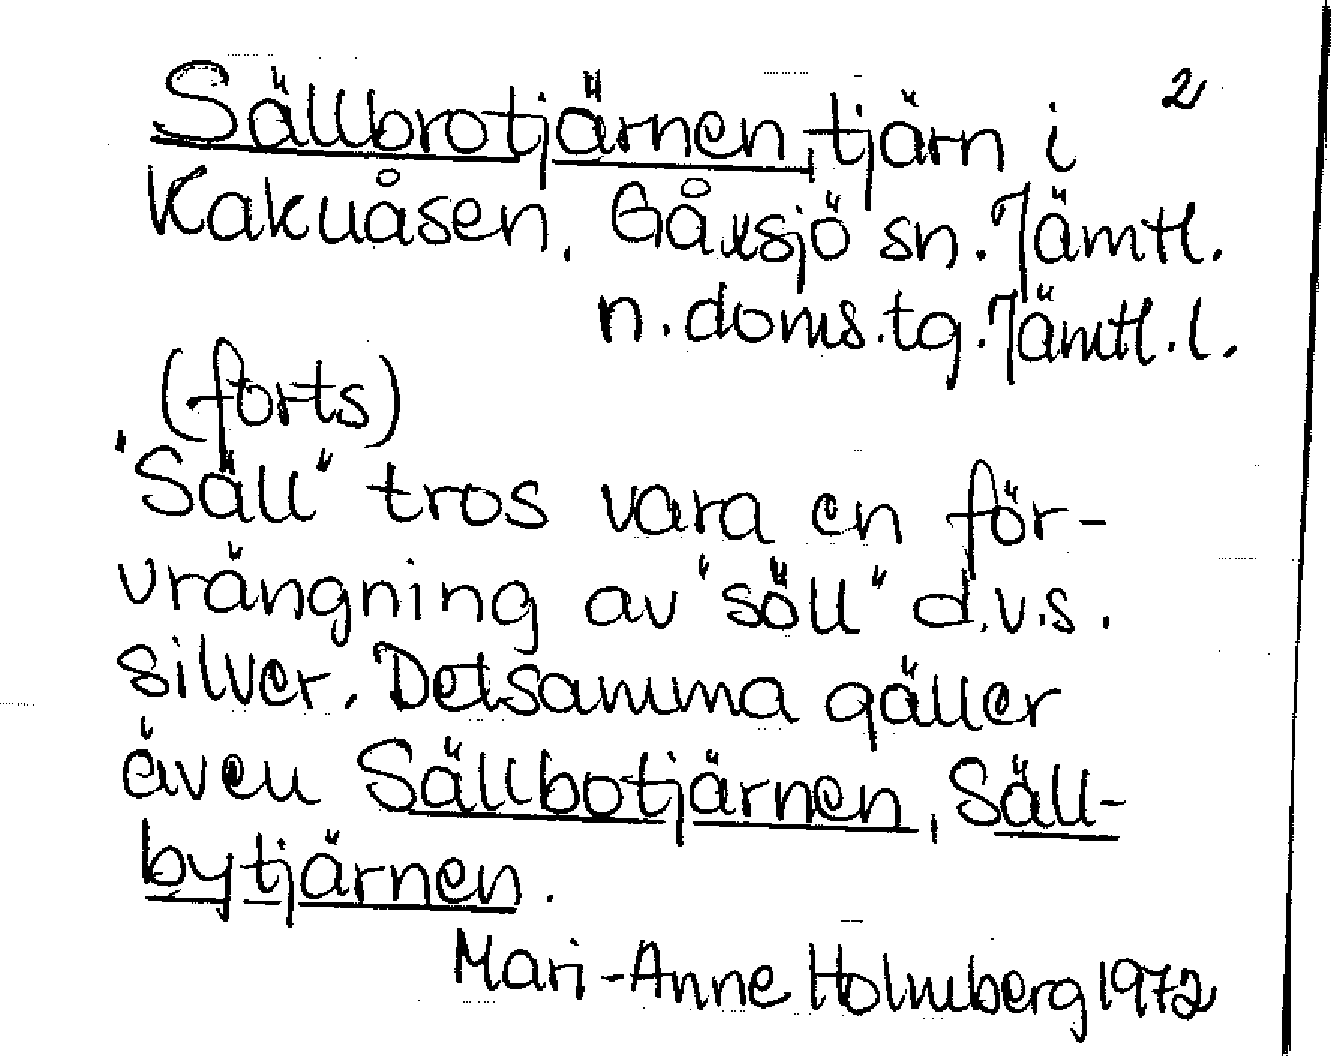 Sällbrotjärnen, tjärn i 2
Kakuåsen, Gåxsjö sn. Jämtl.
n. doms. tg. Jämtl. l.
(forts)
"Säll" tros vara en för-
vrängning av "söll" d.v.s.
silver. Detsamma gäller
även Sällbotjärnen, Säll-
bytjärnen.
Mari-Anne Holmberg 1972